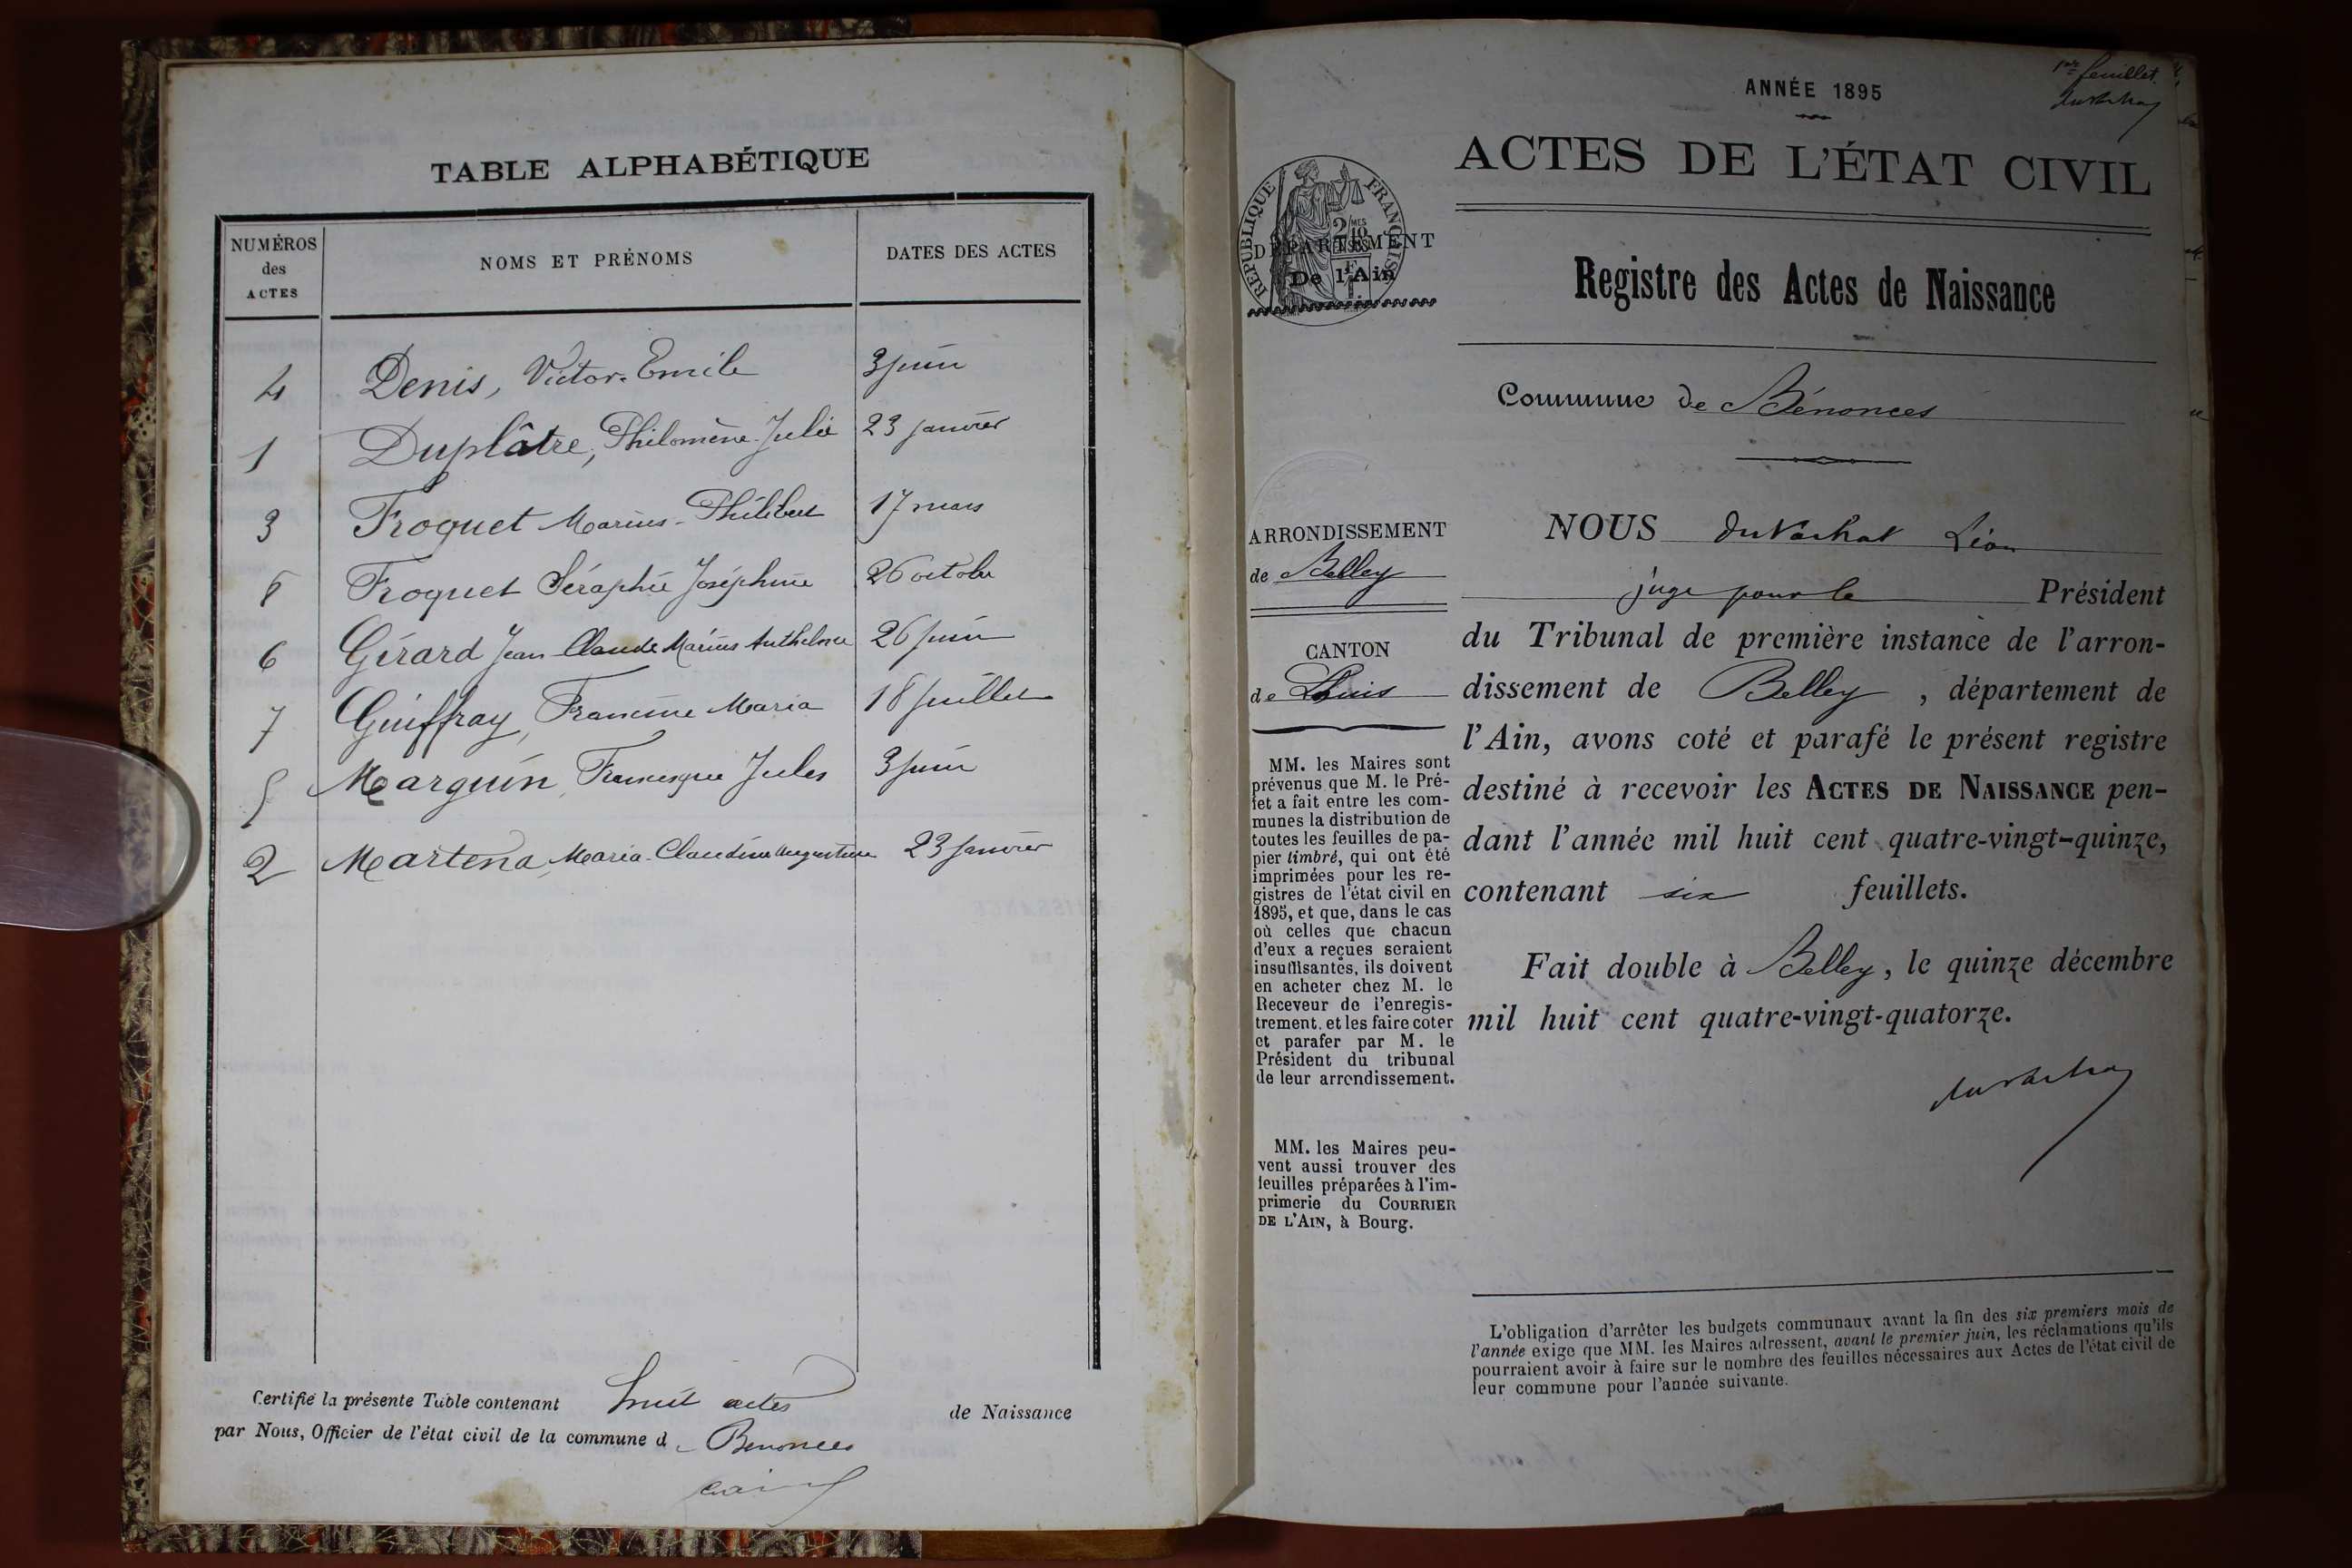 TABLE ALPHABÉTIQUE
NUMÉROS
des
ACTES
NOMS ET PRÉNOMS
DATES DES ACTES
4 Denis, Victor-Emile 3 juin
1 Duplâtre, Philomène-Julie 23 janvier
3 Froquet Marius-Philibert 17 mars
8 Froquet Séraphie Joséphine 26 octobre
6 Gérard Jean Claude Marius Anthelme 26 juin
7 Guiffray, Francine Maria 18 juillet
5 Marguin, Francisque Jules 3 juin
2 Martena, Maria-Claudine Augustine 23 janvier
Certifié la présente Table contenant huit actes de Naissance
par Nous, Officier de l'état civil de la commune d e Benonces
1er feuillet.
ANNÉE 1895
ACTES DE L'ÉTAT CIVIL
RÉPUBLIQUE FRANÇAISE
DÉPARTEMENT
De l'Ain
Registre des Actes de Naissance
Commune de Bénonces
ARRONDISSEMENT
de Belley
CANTON
de Lhuis
MM. les Maires sont
prévenus que M. le Pré-
fet a fait entre les com-
munes la distribution de
toutes les feuilles de pa-
pier timbré, qui ont été
imprimées pour les re-
gistres de l'état civil en
1895, et que, dans le cas
où celles que chacun
d'eux a reçues seraient
insuffisantes, ils doivent
en acheter chez M. le
Receveur de l'enregis-
trement. et les faire coter
et parafer par M. le
Président du tribunal
de leur arrondissement.
MM. les Maires peu-
vent aussi trouver des
feuilles préparées à l'im-
primerie du COURRIER
DE L'AIN, à Bourg.
NOUS duVachat Léon
juge pour le Président
du Tribunal de première instance de l'arron-
dissement de Belley, département de
l'Ain, avons coté et parafé le présent registre
destiné à recevoir les ACTES DE NAISSANCE pen-
dant l'année mil huit cent quatre-vingt-quinze,
contenant six feuillets.
Fait double à Belley, le quinze décembre
mil huit cent quatre-vingt-quatorze.
duVachat
L'obligation d'arrêter les budgets communaux avant la fin des six premiers mois de
l'année exige que MM. les Maires adressent, avant le premier juin, les réclamations qu'ils
pourraient avoir à faire sur le nombre des feuilles nécessaires aux Actes de l'état civil de
leur commune pour l'année suivante.